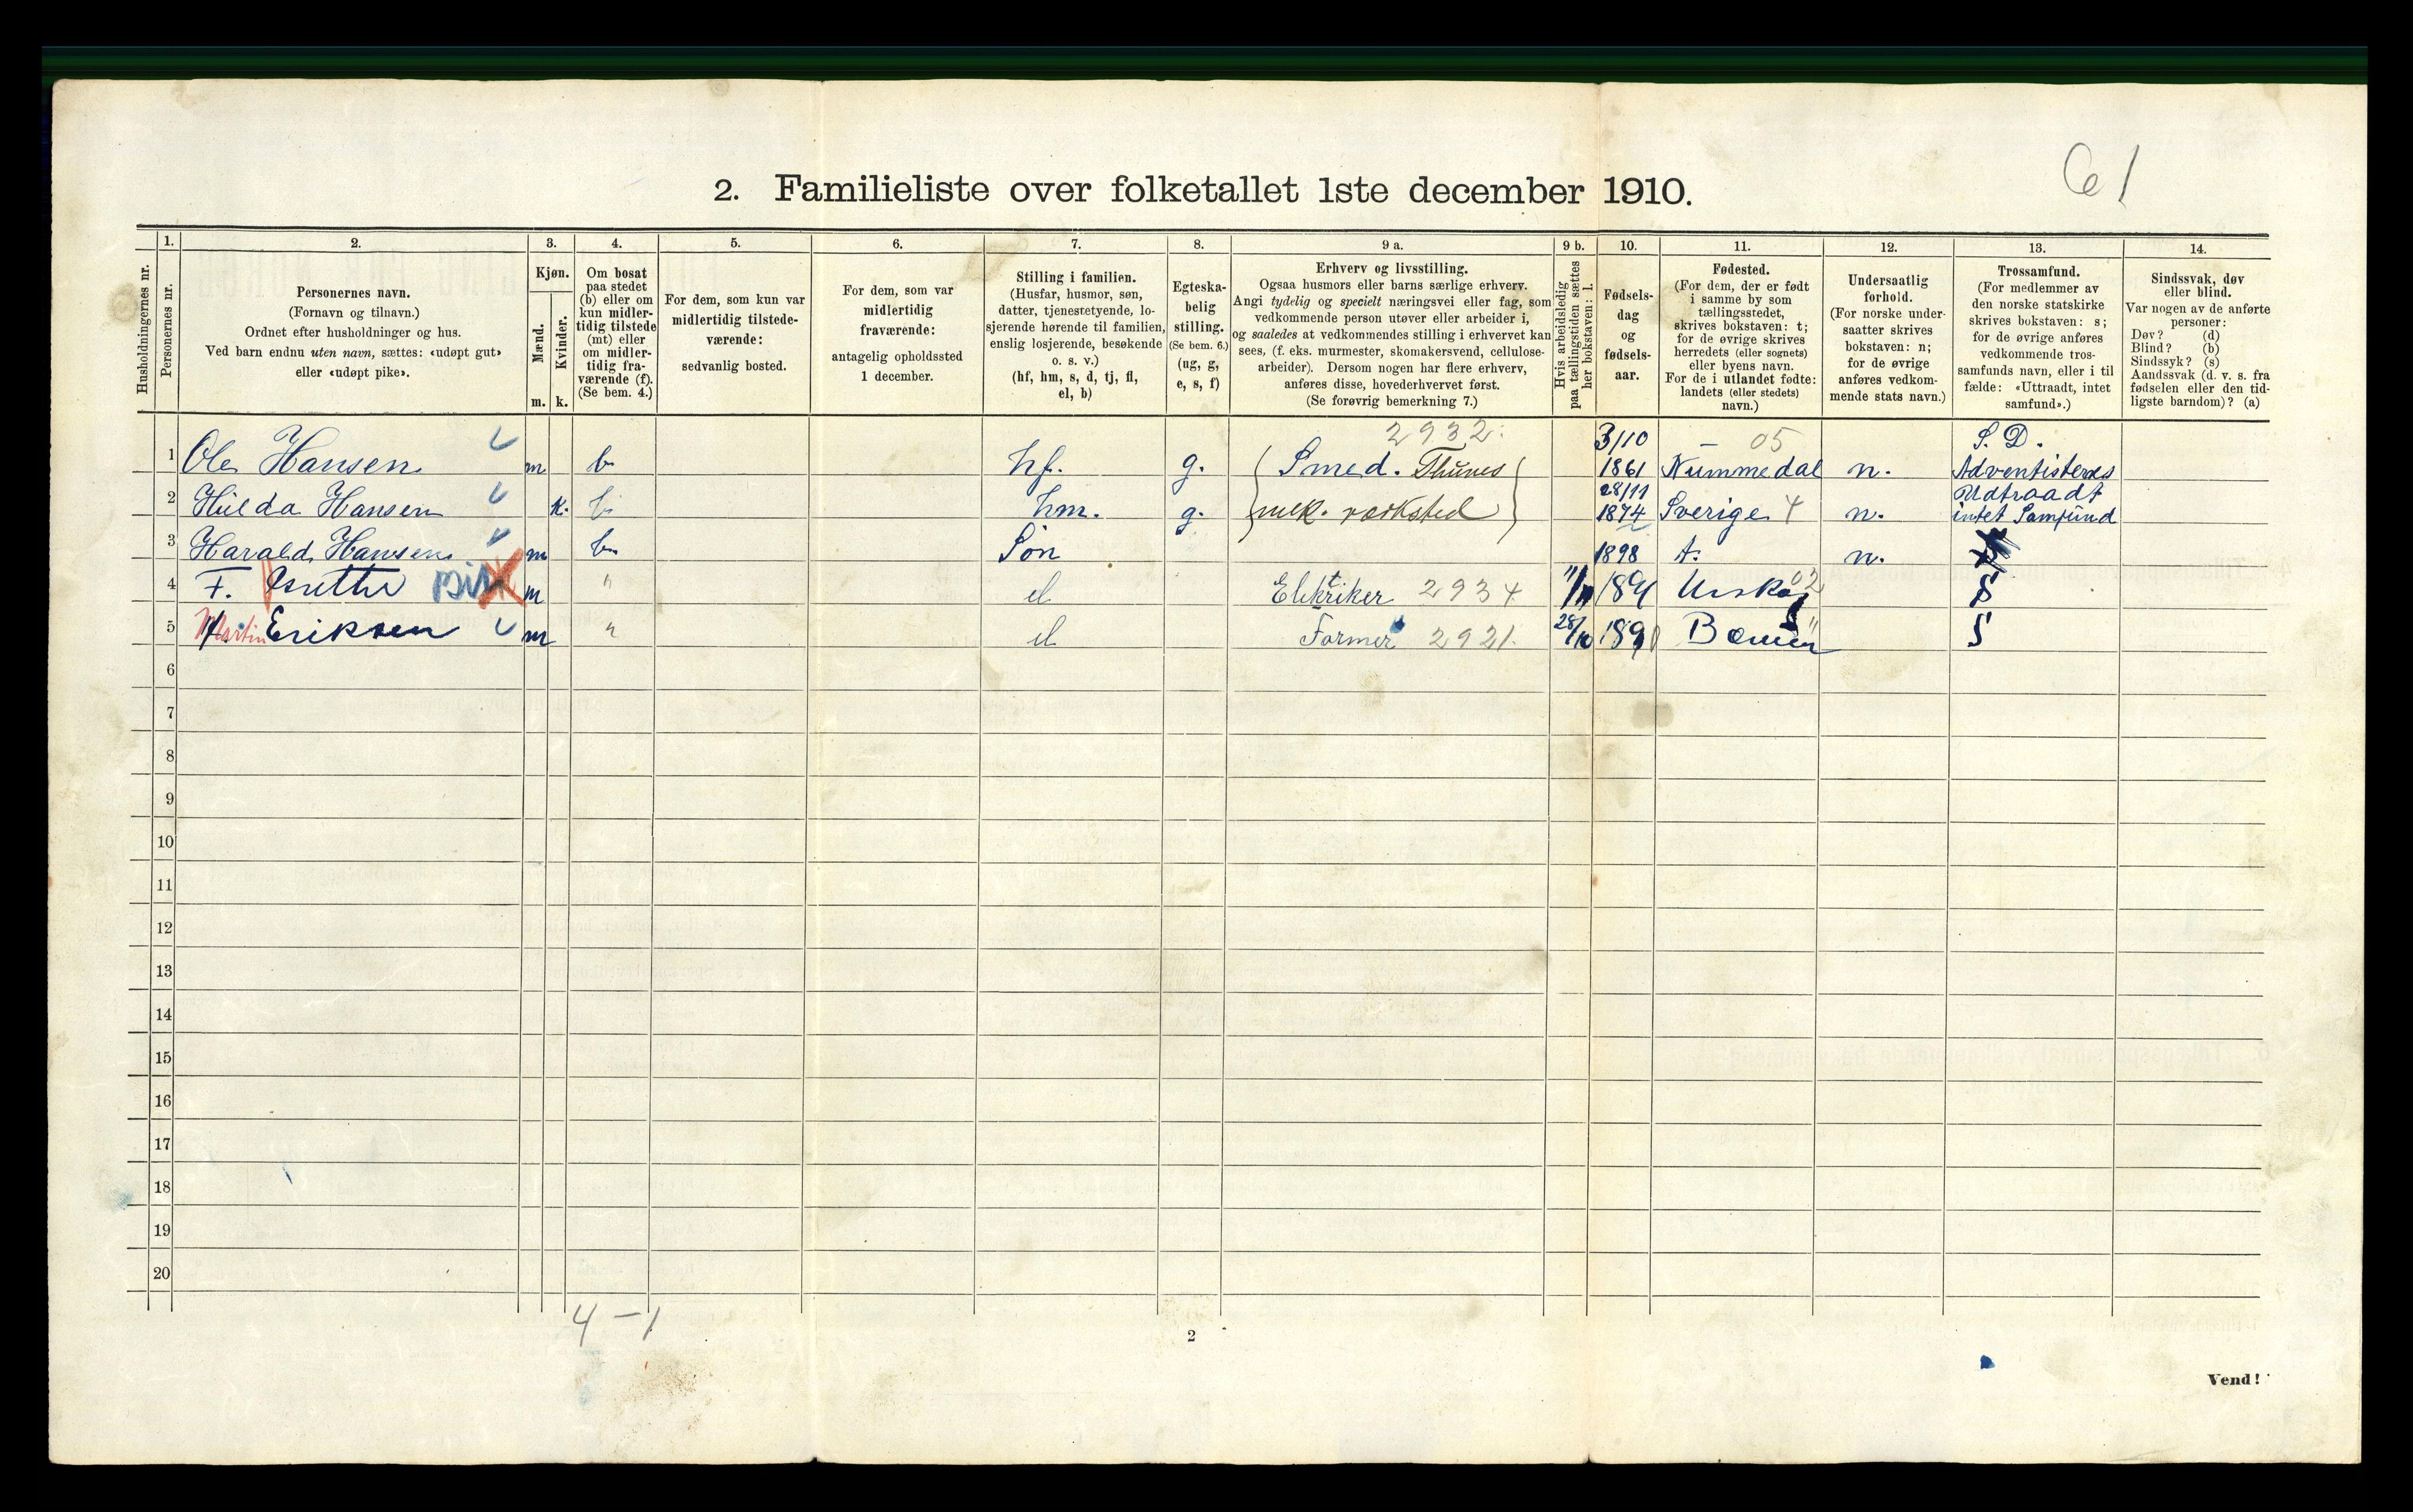 61
2. Familieliste over folketallet 1ste december 1910.
Husholdningernes nr.
1.
Personernes nr.
2.
Personernes navn.
(Fornavn og tilnavn.)
Ordnet efter husholdninger og hus.
Ved barn endnu uten navn, sættes: «udøpt gut»
eller «udøpt pike».
3.
Kjøn.
Mænd.
Kvinder.
m. k.
4.
Om bosat
paa stedet
(b) eller om
kun midler-
tidig tilstede
(mt) eller
om midler-
tidig fra-
værende (f).
(Se bem. 4.)
5.
For dem, som kun var
midlertidig tilstede-
værende:
sedvanlig bosted.
6.
For dem, som var
midlertidig
fraværende:
antagelig opholdssted
1 december.
7.
Stilling i familien.
(Husfar, husmor, søn,
datter, tjenestetyende, lo-
sjerende hørende til familien,
enslig losjerende, besøkende
o. s. v.)
(hf, hm, s, d, tj, fl,
el, b)
8.
Egteska-
belig
stilling.
(Se bem. 6.)
(ug, g,
e, s, f)
9 a.
Erhverv og livsstilling.
Ogsaa husmors eller barns særlige erhverv.
Angi tydelig og specielt næringsvei eller fag, som
vedkommende person utøver eller arbeider i,
og saaledes at vedkommendes stilling i erhvervet kan
sees, (f. eks. murmester, skomakersvend, cellulose-
arbeider). Dersom nogen har flere erhverv,
anføres disse, hovederhvervet først.
(Se forøvrig bemerkning 7.)
9 b.
Hvis arbeidsledig
paa tællingstiden sættes
her bokstaven: l.
10.
Fødsels-
dag
og
fødsels-
aar.
11.
Fødested.
(For dem, der er født
i samme by som
tællingsstedet,
skrives bokstaven: t;
for de øvrige skrives
herredets (eller sognets)
eller byens navn.
For de i utlandet fødte:
landets (eller stedets)
navn.)
12.
Undersaatlig
forhold.
(For norske under-
saatter skrives
bokstaven: n;
for de øvrige
anføres vedkom-
mende stats navn.)
13.
Trossamfund.
(For medlemmer av
den norske statskirke
skrives bokstaven: s;
for de øvrige anføres
vedkommende tros-
samfunds navn, eller i til
fælde: «Uttraadt, intet
samfund».)
14.
Sindssvak, døv
eller blind.
Var nogen av de anførte
personer:
Døv? (d)
Blind? (b)
Sindssyk? (s)
Aandssvak (d. v. s. fra
fødselen eller den tid-
ligste barndom)? (a)
2932. 3/10 – 05 S. D.
1 Ole Hansen m b. hf. g. Smed. Thunes 1861 Nummedal n. Adventisteres
28/11 Udtraadt
2 Hulda Hansen k. b. hm. g. mek. værksted 1874 Sverige 4 n. intet Samfund
3 Harald Hansen m b. Søn 1898 t. n.
4 F. m " el Elektriker 2934 1891 Urskog 02 S
5 Martin Eriksen m " el Former 2921. 28/10 1890 S
6
7
8
9
10
11
12
13
14
15
16
17
18
19
20
4 – 1
2
Vend!